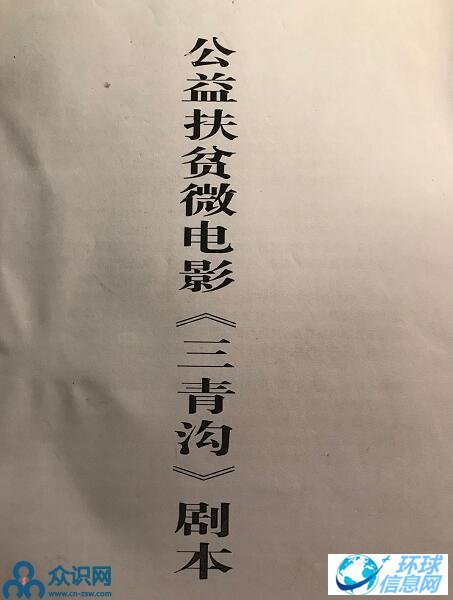 公益扶贫微电影《三青沟》剧本
众识网
www.cn-zsw.com
环球
信息网